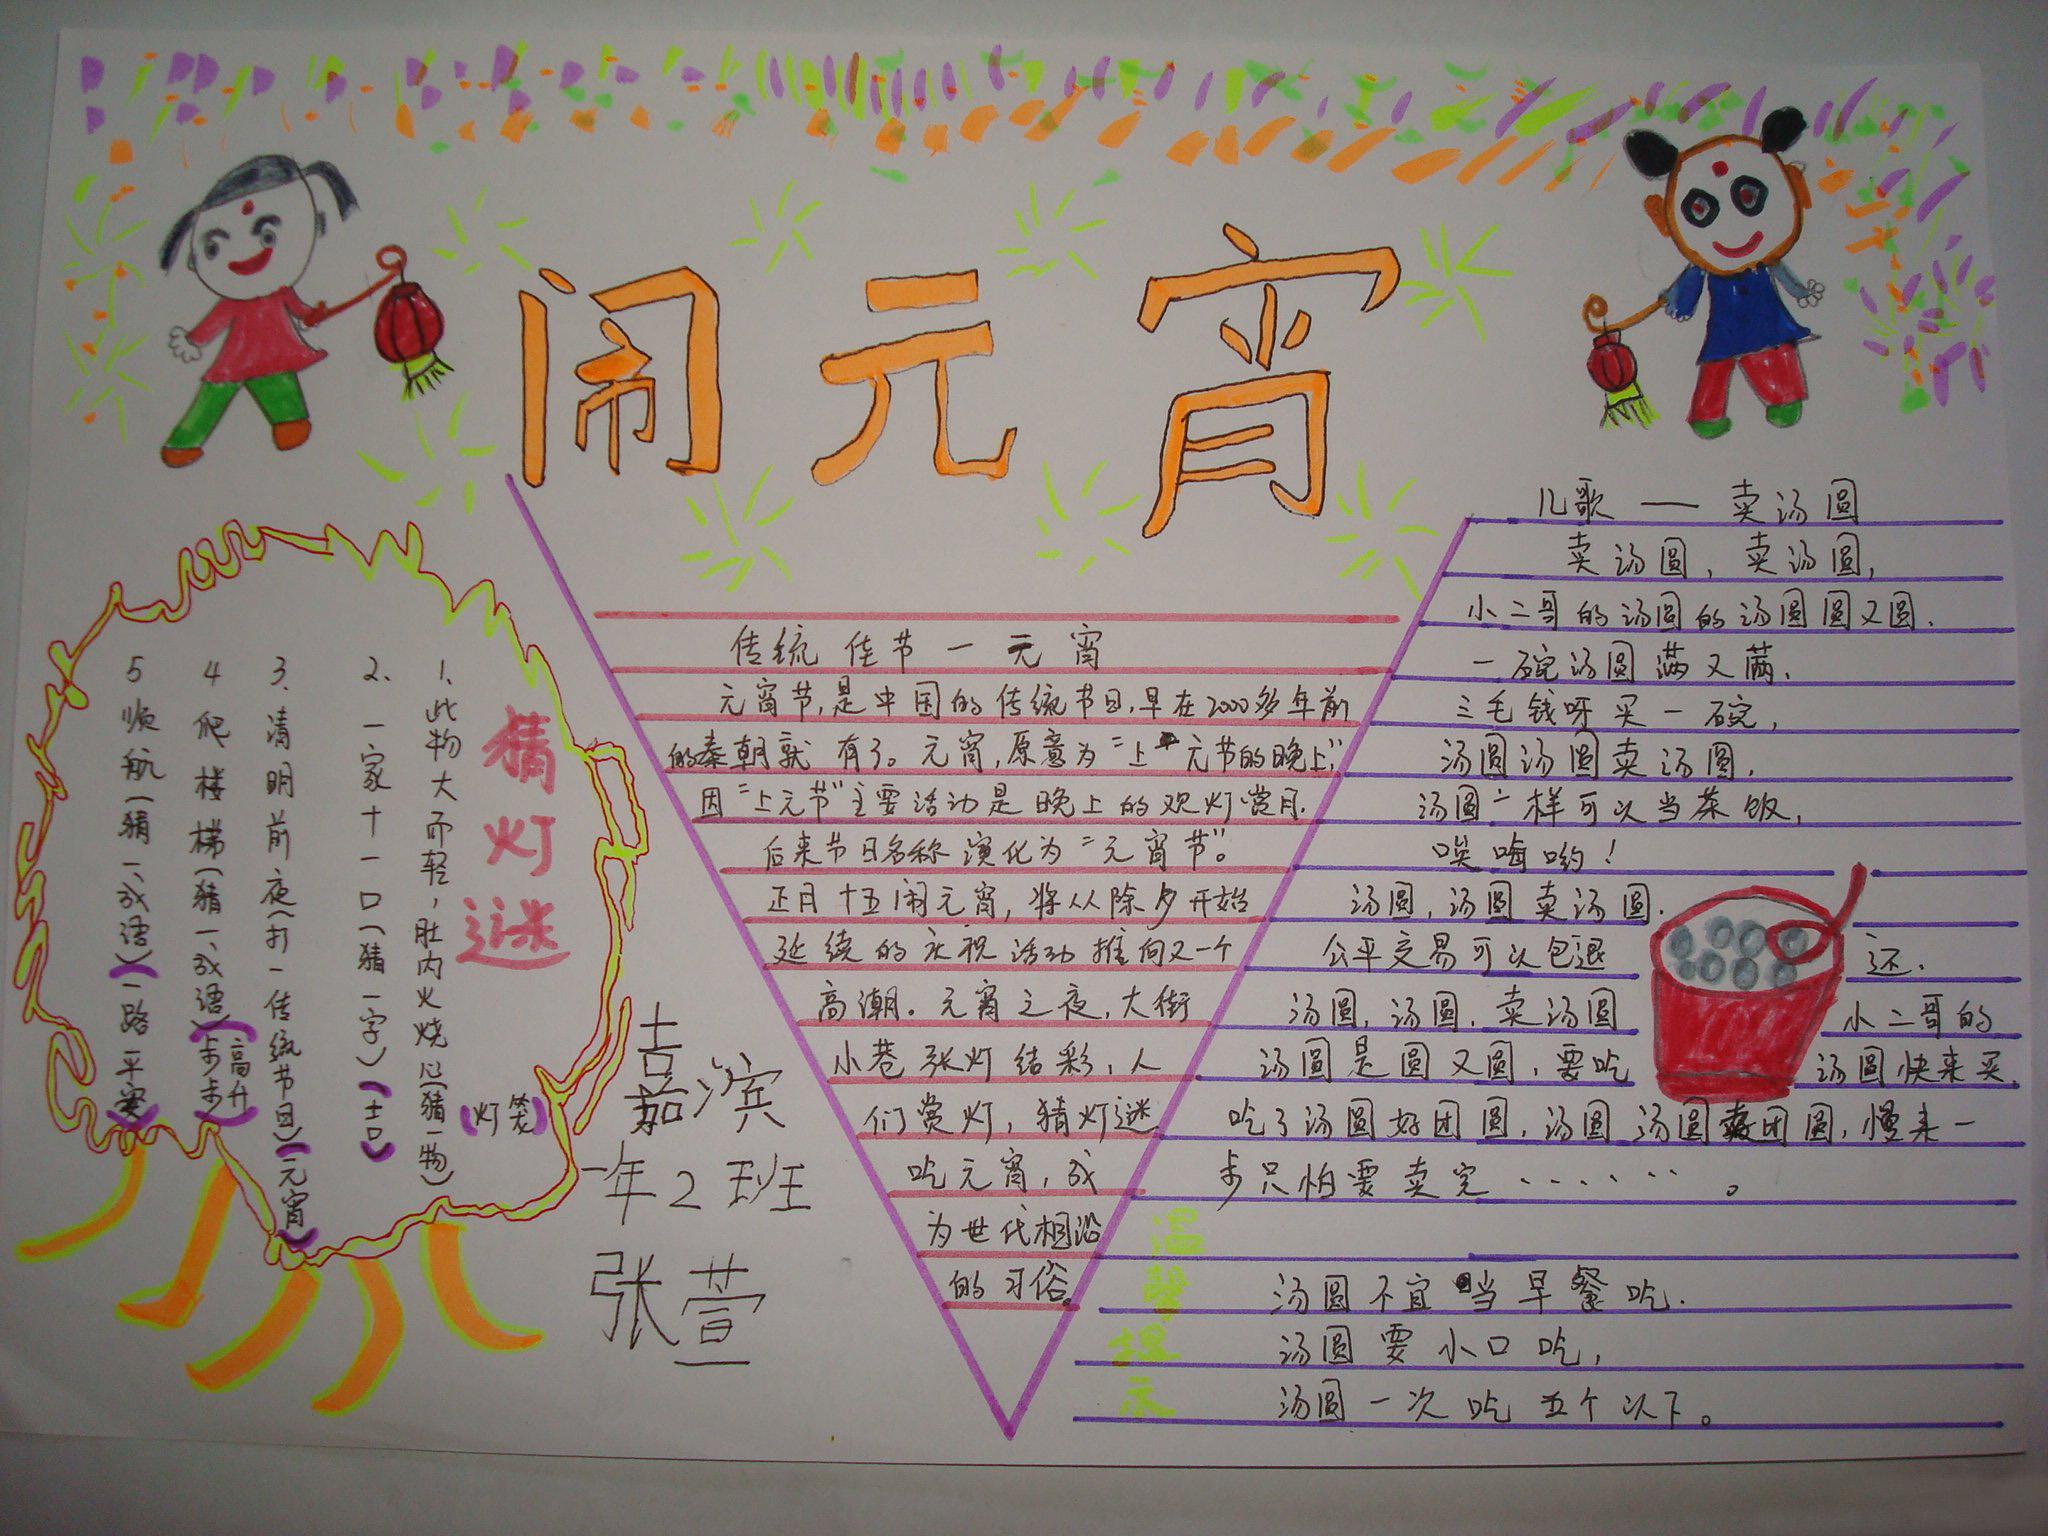 闹元宵
猜灯谜
1、此物大而轻，肚内火烧心(猜一物)
(灯笼)
2、一家十一口(猜一字)(吉)
3、清明前夜(打一传统节日)(元宵)
4 爬楼梯(猜一成语)(步步高升)
5 顺航(猜一成语)(一路平安)
嘉滨
一年2班
张萱
传统佳节一元宵
元宵节,是中国的传统节日,早在2000多年前
的秦朝就有了。元宵,原意为“上元节的晚上”,
因“上元节”主要活动是晚上的观灯赏月.
后来节日名称演化为“元宵节”。
正月十五闹元宵,将从除夕开始
延续的庆祝活动推向又一个
高潮。元宵之夜,大街
小巷张灯结彩,人
们赏灯,猜灯谜
吃元宵,成
为世代相沿
的习俗。
儿歌——卖汤圆
卖汤圆,卖汤圆,
小二哥的汤圆的汤圆圆又圆.
一碗汤圆满又满.
三毛钱呀买一碗,
汤圆汤圆卖汤圆.
汤圆一样可以当茶饭,
唉嗨哟!
汤圆,汤圆卖汤圆.
公平交易可以包退还.
汤圆,汤圆,卖汤圆 小二哥的
汤圆是圆又圆,要吃汤圆快来买.
吃了汤圆好团圆,汤圆汤圆卖团圆,慢来一
步只怕要卖完······。
温馨提示
汤圆不宜当早餐吃.
汤圆要小口吃,
汤圆一次吃五个以下。